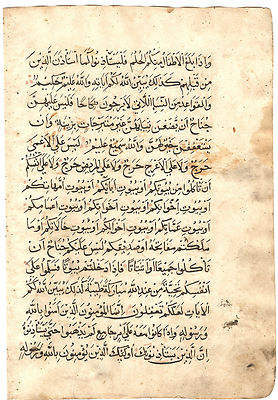 واذا بلغ الاطفال منكم الحلم فليستاذنوا كما استاذن الذين
من قبلهم كذلك يبين الله لكم اياته والله عليم حكيم
والقواعد من النساء اللاتي لا يرجون نكاحا فليس عليهن
جناح ان يضعن ثيابهن غير متبرجات بزينة وان
يستعففن خير لهن والله سميع عليم ليس على الاعمى
حرج ولا على الاعرج حرج ولا على المريض حرج ولا على انفسكم
ان تاكلوا من بيوتكم او بيوت ابائكم او بيوت امهاتكم
او بيوت اخوانكم او بيوت اخواتكم او بيوت اعمامكم
او بيوت عماتكم او بيوت اخوالكم او بيوت خالاتكم او ما
ملكتم مفاتحه او صديقكم ليس عليكم جناح ان
تاكلوا جميعا او اشتاتا فاذا دخلتم بيوتا فسلموا على
انفسكم تحية من عند الله مباركة طيبة كذلك يبين الله لكم
الايات لعلكم تعقلون انما المؤمنون الذين امنوا بالله
ورسوله واذا كانوا معه على امر جامع لم يذهبوا حتى يستاذنوه
ان الذين يستاذنونك اولئك الذين يؤمنون بالله ورسوله